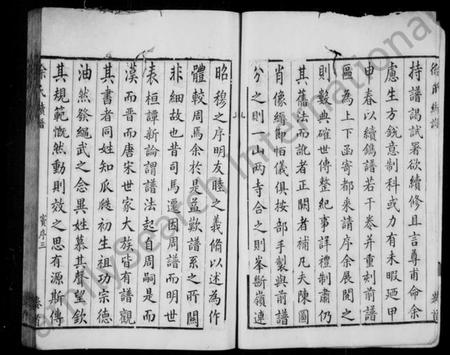 持譜謁試署欲續修且言尊甫命余
慮生方銳意制科或力有未暇迺甲
申春以續鐫譜若干卷并重刻前譜
區為上下函寄都來請序余展閱之
則數典確世傳整紀事詳禮制肅仍
其舊法而訛者正闕者補凡夫陳圖
肖像續節怡儀俱按部手製與前譜
分之則一山兩寺合之則峯斷嶺連
昭穆之序明友睦之義脩以述為作
體較周焉余於是益歎譜系之所關
非細故也昔司馬遷因周譜而明世
表桓譚新論謂譜法起自周嗣是而
漢而晋而唐宋世家大族皆有譜觀
其書者同姓知瓜瓞初生祖功宗德
油然發繩武之念異姓慕其聲望欽
其規範慨然動則效之思有源斯傳
徐氏續譜
賓序三
Family Search International